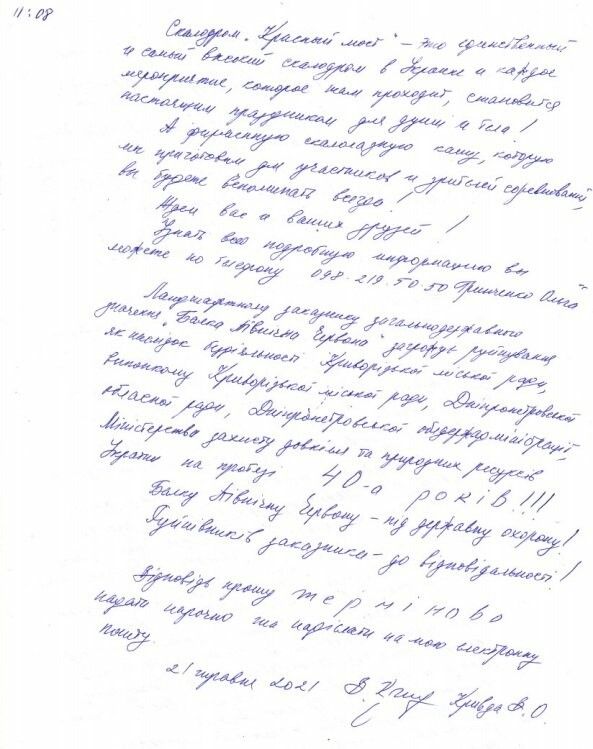 11:08
Скалодром „Красный мост" – это единственный
и самый высокий скалодром в Украине и каждое
мероприятие, которое там проходит, становится
настоящим праздником для души и тела!
А фирменную скалолазную кашу, которую
мы приготовим для участников и зрителей соревнований,
вы будете вспоминать всегда!
Ждем вас и ваших друзей!
Узнать всю подробную информацию вы
можете по телефону 098-219-50-50 Гринченко Ольга
Ландшафтному заказнику загальнодержавного
значення „Балка Північна Червона" загрожує руйнування
як наслідок бездіяльності Криворізької міської ради,
виконкому Криворізької міської ради, Дніпропетровської
обласної ради, Дніпропетровської облдержадміністрації,
Міністерства захисту довкілля та природних ресурсів
України на протязі 40-а років!!!
Балку Північну Червону – під державну охорону!
Руйнівників заказника – до відповідальності!
Відповідь прошу терміново
надати нарочно та надіслати на мою електронну
пошту.
21 травня 2021 Кривда В.О.